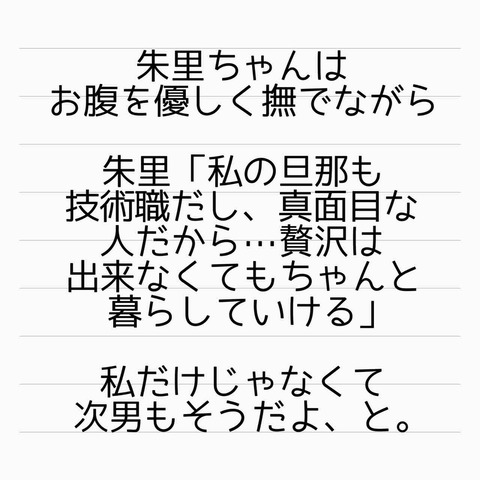 朱里ちゃんは
お腹を優しく撫でながら
朱里「私の旦那も
技術職だし、真面目な
人だから…贅沢は
出来なくてもちゃんと
暮らしていける」
私だけじゃなくて
次男もそうだよ、と。